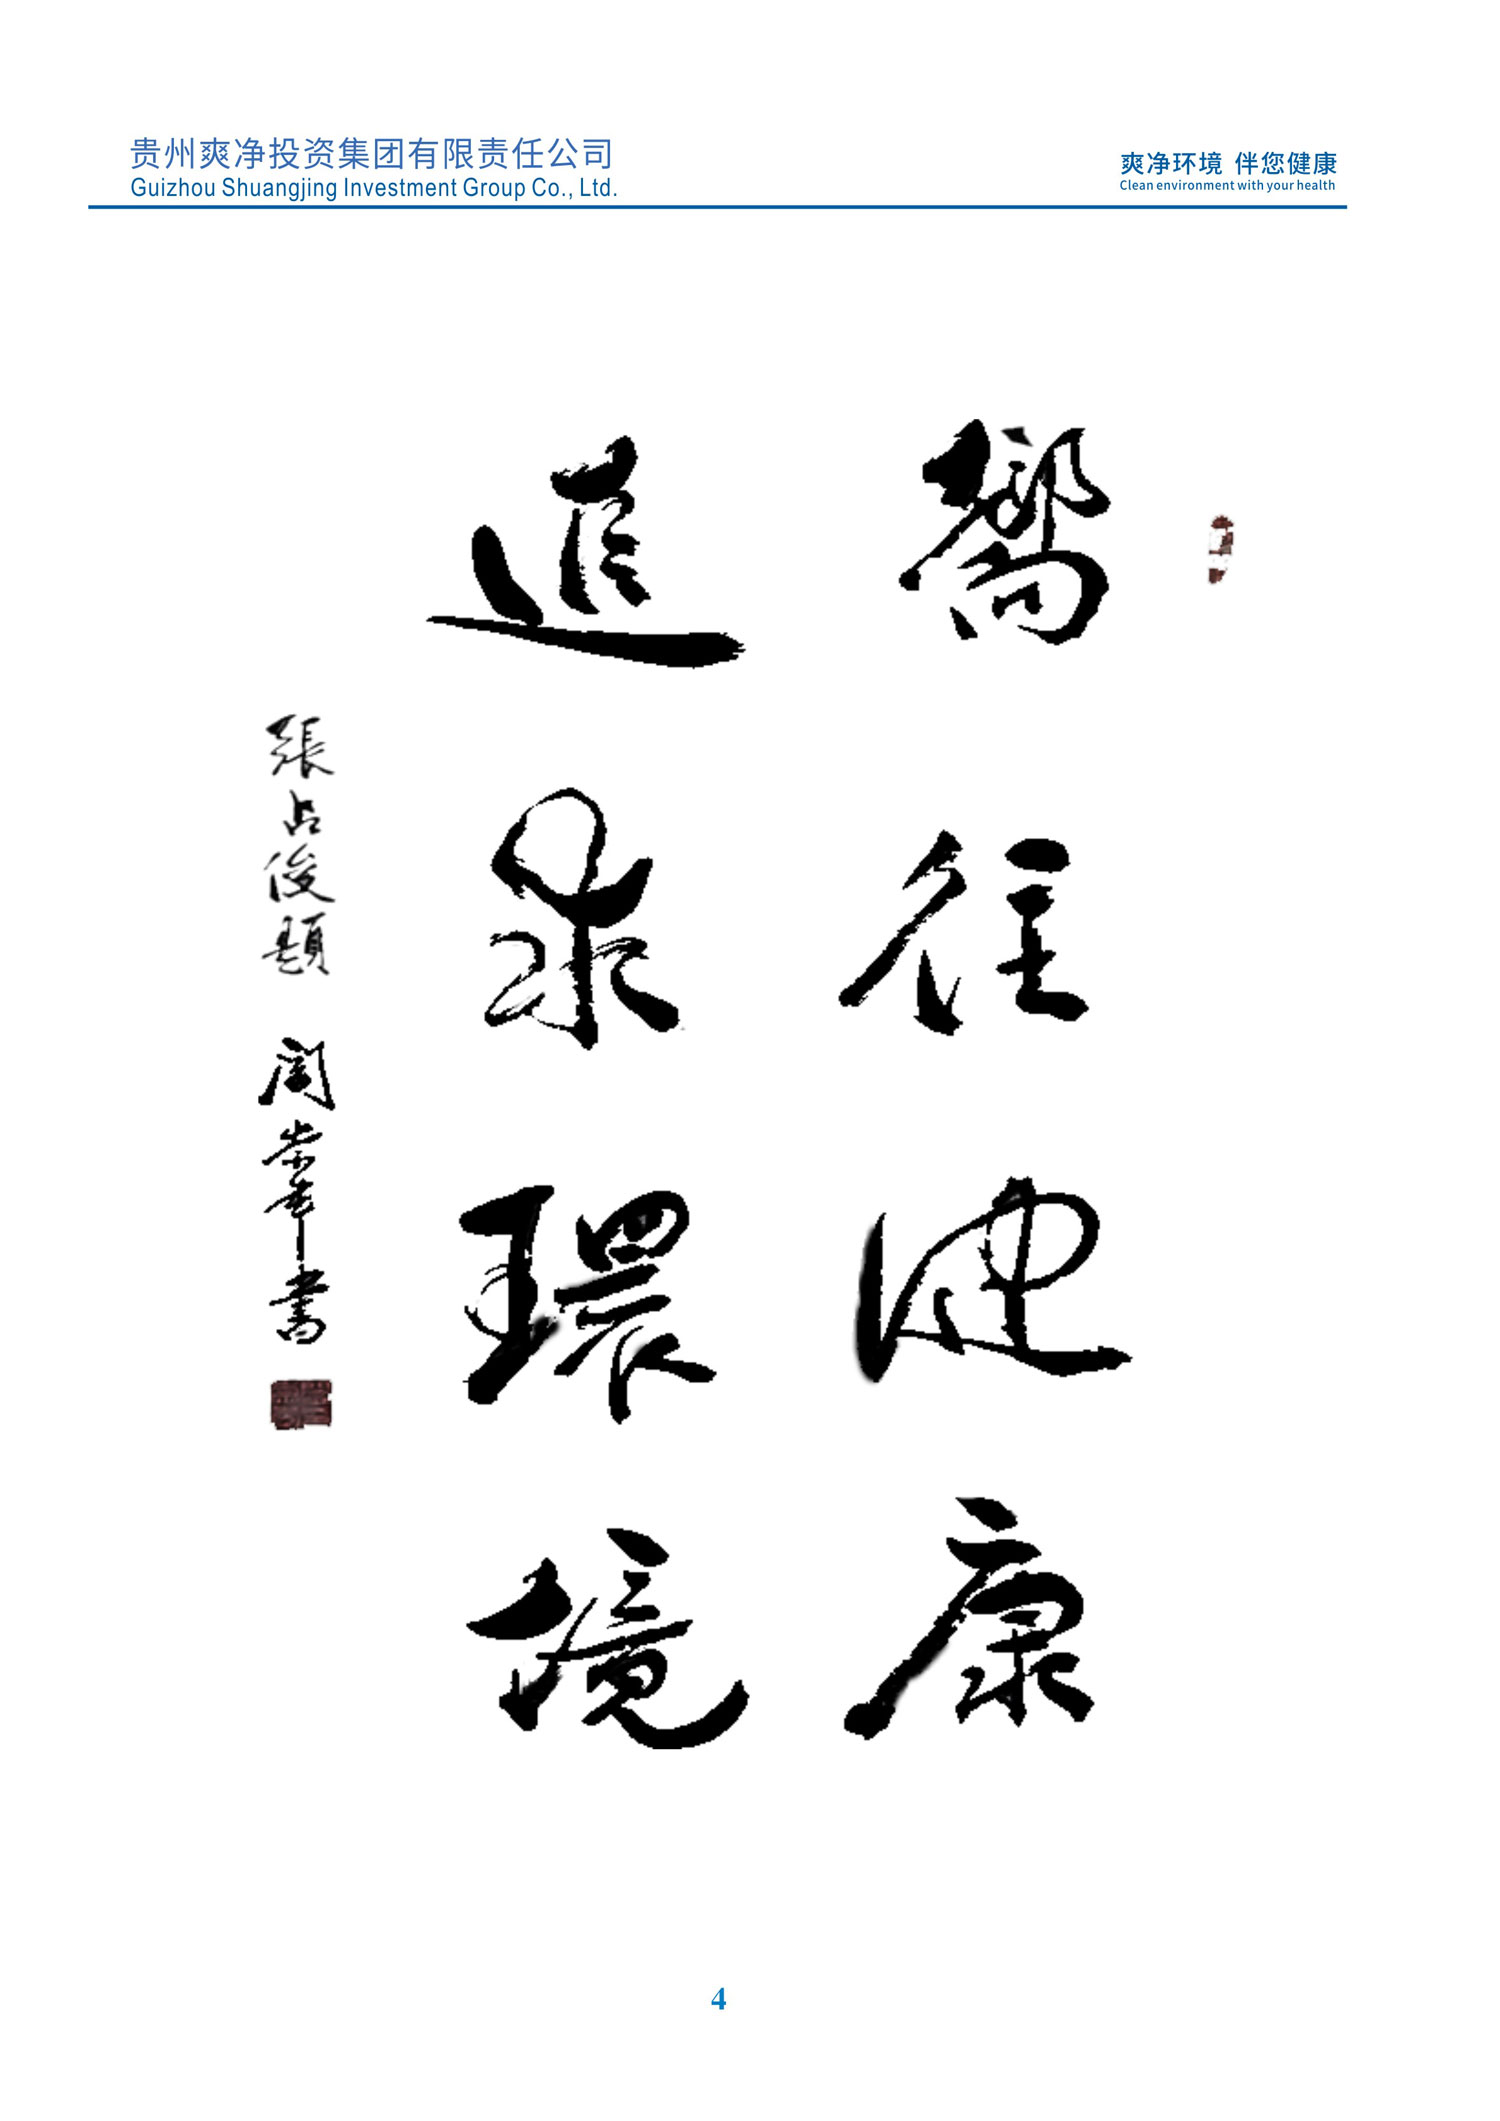 贵州爽净投资集团有限责任公司
Guizhou Shuangjing Investment Group Co., Ltd.
爽净环境 伴您健康
Clean environment with your health
嚮往健康
追求環境
張占俊題 閻崇年書
4